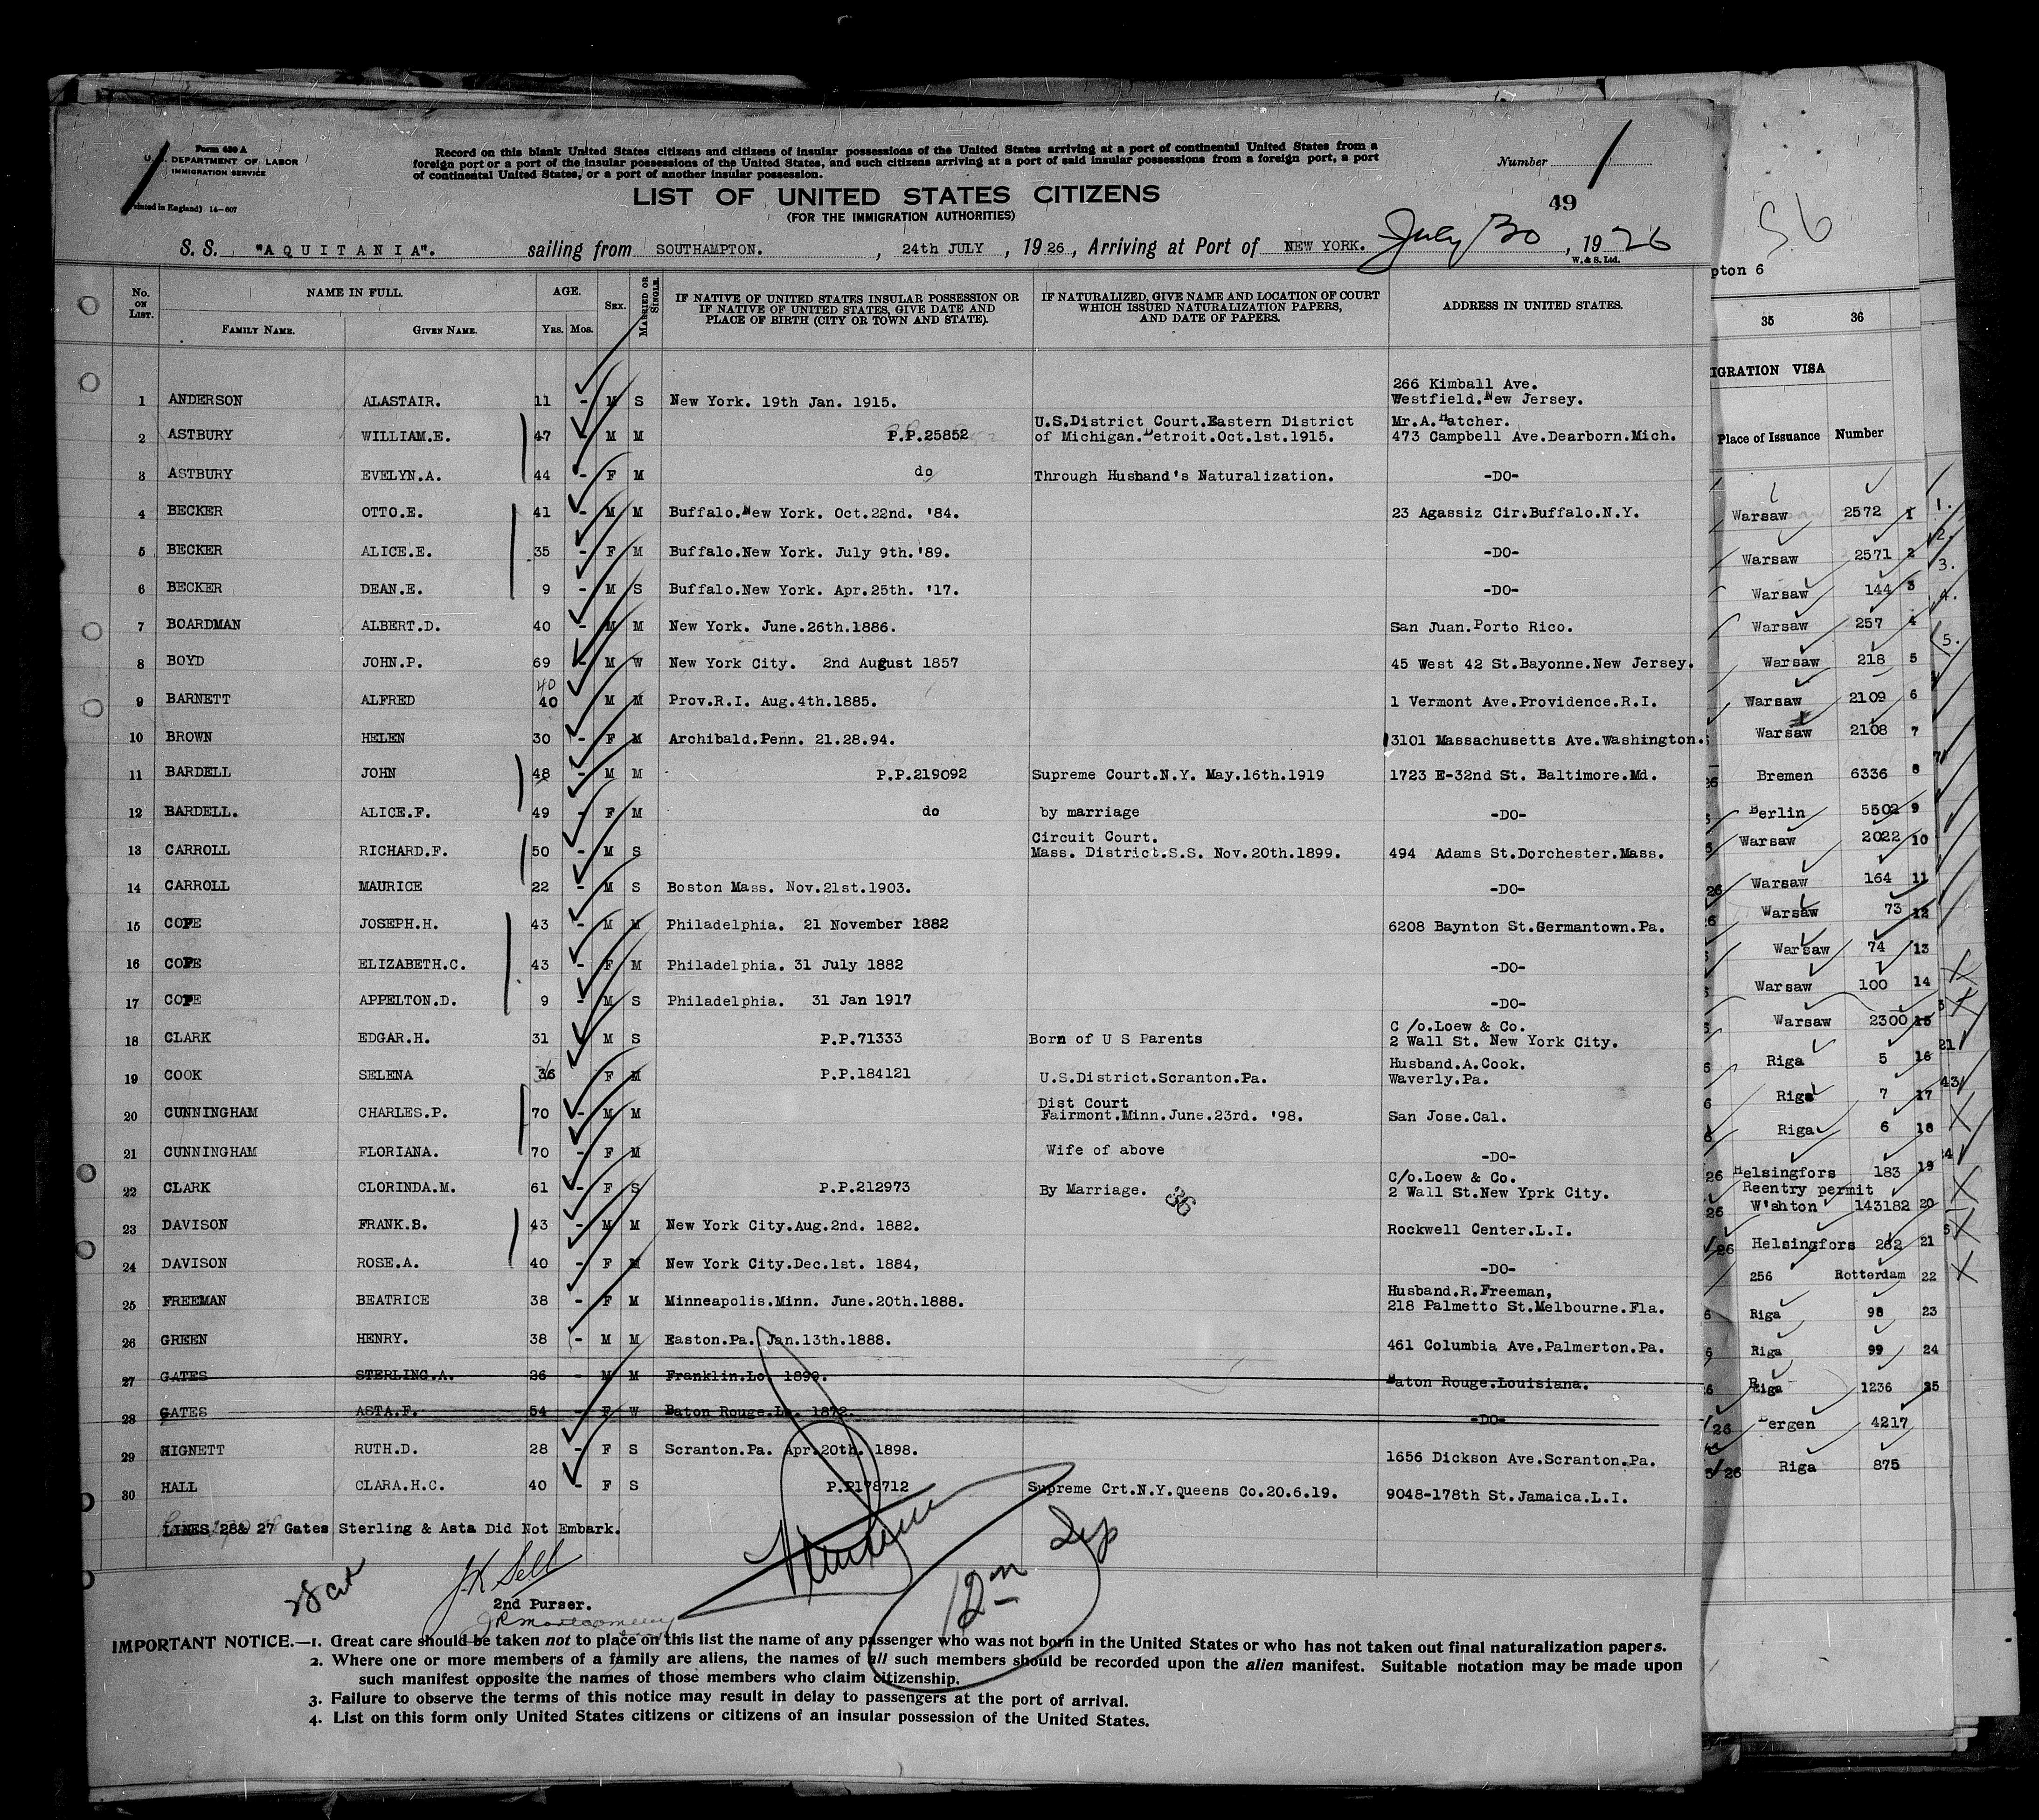 Form 630 A
U.S. DEPARTMENT OF LABOR
IMMIGRATION SERVICE
Printed in England) 14-607
Record on this blank United States citizens and citizens of insular possessions of the United States arriving at a port of continental United States from a
foreign port or a port of the insular possessions of the United States, and such citizens arriving at a port of said insular possessions from a foreign port, a port
of continental United States, or a port of another insular possession.
Number
LIST OF UNITED STATES CITIZENS
(FOR THE IMMIGRATION AUTHORITIES)
49
S. S. "AQUITANIA". sailing from SOUTHAMPTON. , 24th JULY , 1926, Arriving at Port of NEW YORK. July 30, 1926
W. & S. Ltd.
No. ON LIST. NAME IN FULL. AGE. SEX. MARRIED OR SINGLE. IF NATIVE OF UNITED STATES INSULAR POSSESSION OR IF NATIVE OF UNITED STATES, GIVE DATE AND PLACE OF BIRTH (CITY OR TOWN AND STATE). IF NATURALIZED, GIVE NAME AND LOCATION OF COURT WHICH ISSUED NATURALIZATION PAPERS, AND DATE OF PAPERS. ADDRESS IN UNITED STATES.
FAMILY NAME. GIVEN NAME. YRS. MOS.
266 Kimball Ave.
1 ANDERSON ALASTAIR. 11 - M S New York. 19th Jan. 1915. Westfield.New Jersey.
U.S.District Court.Eastern District Mr.A.Hatcher.
2 ASTBURY WILLIAM.E. 47 - M M P.P.25852 of Michigan.Detroit.Oct.1st.1915. 473 Campbell Ave.Dearborn.Mich.
3 ASTBURY EVELYN.A. 44 - F M do Through Husband's Naturalization. -DO-
4 BECKER OTTO.E. 41 - M M Buffalo.New York. Oct.22nd. '84. 23 Agassiz Cir.Buffalo.N.Y.
5 BECKER ALICE.E. 35 - F M Buffalo.New York. July 9th.'89. -DO-
6 BECKER DEAN.E. 9 - M S Buffalo.New York. Apr.25th. '17. -DO-
7 BOARDMAN ALBERT.D. 40 - M M New York. June.26th.1886. San Juan.Porto Rico.
8 BOYD JOHN.P. 69 - M W New York City. 2nd August 1857 45 West 42 St.Bayonne.New Jersey.
40
9 BARNETT ALFRED 40 M M Prov.R.I. Aug.4th.1885. 1 Vermont Ave.Providence.R.I.
10 BROWN HELEN 30 - F M Archibald.Penn. 21.28.94. 3101 Massachusetts Ave.Washington.
11 BARDELL JOHN 48 - M M P.P.219092 Supreme Court.N.Y. May.16th.1919 1723 E-32nd St. Baltimore.Md.
12 BARDELL. ALICE.F. 49 - F M do by marriage -DO-
Circuit Court.
13 CARROLL RICHARD.F. 50 - M S Mass. District.S.S. Nov.20th.1899. 494 Adams St.Dorchester.Mass.
14 CARROLL MAURICE 22 - M S Boston Mass. Nov.21st.1903. -DO-
15 COPE JOSEPH.H. 43 - M M Philadelphia. 21 November 1882 6208 Baynton St.Germantown.Pa.
16 COPE ELIZABETH.C. 43 - F M Philadelphia. 31 July 1882 -DO-
17 COPE APPELTON.D. 9 - M S Philadelphia. 31 Jan 1917 -DO-
C /o.Loew & Co.
18 CLARK EDGAR.H. 31 M S P.P.71333 Born of U S Parents 2 Wall St. New York City.
Husband.A.Cook.
19 COOK SELENA 36 F M P.P.184121 U.S.District.Scranton.Pa. Waverly.Pa.
Dist Court
20 CUNNINGHAM CHARLES.P. 70 - M M Fairmont.Minn.June.23rd. '98. San Jose.Cal.
21 CUNNINGHAM FLORIANA. 70 - F M Wife of above -DO-
C/o.Loew & Co.
22 CLARK CLORINDA.M. 61 - F S P.P.212973 By Marriage. 36 2 Wall St.New Yprk City.
23 DAVISON FRANK.B. 43 - M M New York City.Aug.2nd. 1882. Rockwell Center.L.I.
24 DAVISON ROSE.A. 40 - F M New York City.Dec.1st. 1884, -DO-
Husband.R.Freeman,
25 FREEMAN BEATRICE 38 - F M Minneapolis.Minn. June.20th.1888. 218 Palmetto St.Melbourne.Fla.
26 GREEN HENRY. 38 - M M Easton.Pa. Jan.13th.1888. 461 Columbia Ave.Palmerton.Pa.
27 GATES STERLING.A. 26 - M M Franklin.Lo. 1899. Baton Rouge.Louisiana.
28 GATES ASTA.F. 54 - F W Baton Rouge.La. 1872. -DO-
29 HIGNETT RUTH.D. 28 - F S Scranton.Pa. Apr.20th. 1898. 1656 Dickson Ave.Scranton.Pa.
30 HALL CLARA.H.C. 40 - F S P.P178712 Supreme Crt.N.Y.Queens Co.20.6.19. 9048-178th St.Jamaica.L.I.
LINES 28& 27 Gates Sterling & Asta Did Not Embark.
28 cit
J.K Sell
2nd Purser.
JRMontgomery
12
IMPORTANT NOTICE.—1. Great care should be taken not to place on this list the name of any passenger who was not born in the United States or who has not taken out final naturalization papers.
2. Where one or more members of a family are aliens, the names of all such members should be recorded upon the alien manifest. Suitable notation may be made upon
such manifest opposite the names of those members who claim citizenship.
3. Failure to observe the terms of this notice may result in delay to passengers at the port of arrival.
4. List on this form only United States citizens or citizens of an insular possession of the United States.
56
pton 6
35 36
IGRATION VISA
Place of Issuance Number
Warsaw 2572 1
Warsaw 2571 2
Warsaw 144 3
Warsaw 257 4
Warsaw 218 5
Warsaw 2109 6
Warsaw 2108 7
Bremen 6336 8
Berlin 5502 9
Warsaw 2022 10
Warsaw 164 11
Warsaw 73 12
Warsaw 74 13
Warsaw 100 14
Warsaw 2300 15
Riga 5 16
Riga 7 17
Riga 6 18
Helsingfors 183 19
Reentry permit
W'shton 143182 20
Helsingfors 262 21
256 Rotterdam 22
Riga 98 23
Riga 99 24
Riga 1236 25
Bergen 4217
Riga 875
1.
2.
3.
4.
5.